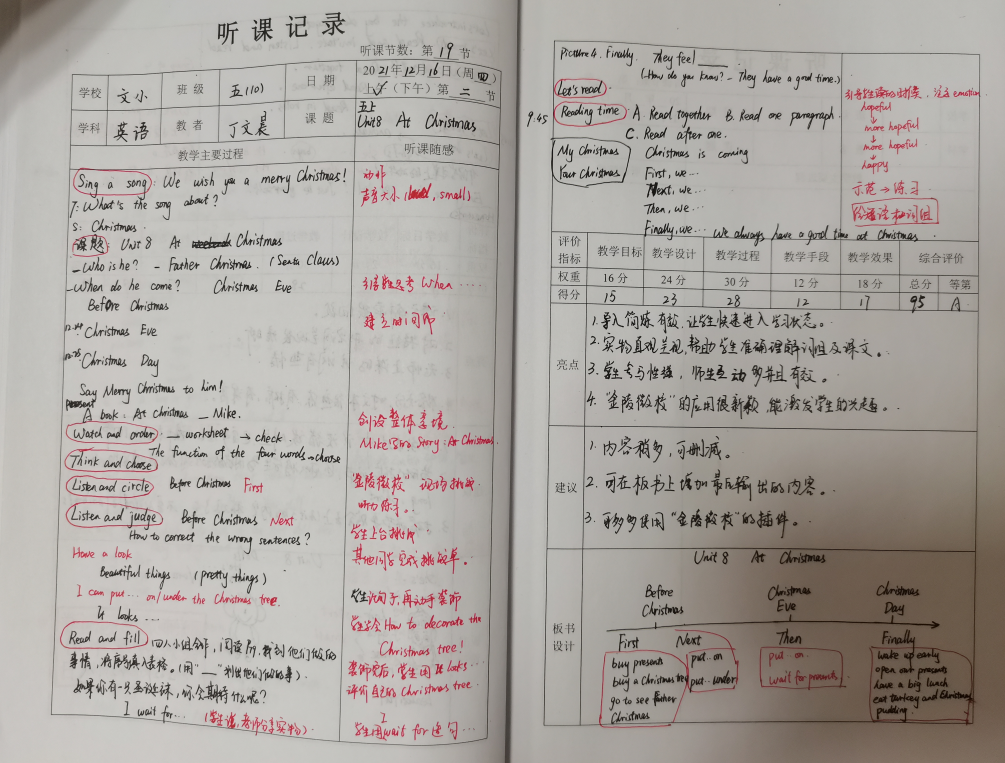 听课记录
听课节数：第 19 节
学校 文小 班级 五(10) 日期 2021年12月16日(周四)
上午(下午) 第 二 节
学科 英语 教者 丁文晨 课题 五上
Unit8 At Christmas
教学主要过程 听课随感
Sing a song: We wish you a merry Christmas!
T: What's the song about?
S: Christmas.
课题: Unit 8 At Christmas
- Who is he? - Father Christmas. (Santa Claus)
- When do he come? Christmas Eve
Before Christmas
12.24 Christmas Eve
12.25 Christmas Day
Say Merry Christmas to him!
A book: At Christmas — Mike.
Watch and order. — worksheet → check.
The function of the four words → choose
Think and choose
Listen and circle Before Christmas First
Listen and judge Before Christmas Next
How to correct the wrong sentences?
Have a look
Beautiful things (pretty things)
I can put... on/under the Christmas tree.
It looks ...
Read and fill 四人小组合作，阅读
事情，将序号填入表格，用“__”
如果你有一只圣诞袜，你会期待什么呢？
I wait for...
声音大小 (small)
引导学生思考 When ....
建立时间轴
创设整体语境
Mike Story: At Christmas.
“金陵微校” 现场挑战
听力练习。
学生上台挑战
其他同学完成挑战单。
学生说句子，再动手装饰
学生学会 How to decorate the
Christmas tree!
装饰完后，学生用 It looks...
评价自己的 Christmas tree.
学生用 wait for 造句...
Picture 4. Finally. They feel ____
(How do you know? - They have a good time.)
Let's read.
9.45 Reading time A. Read together B. Read one paragraph.
C. Read after one.
My Christmas
Your Christmas
Christmas is coming
First, we...
Next, we...
Then, we...
Finally, we... We always have a good time at Christmas.
注意 emotion
hopeful
↓
more hopeful
↓
more hopeful
↓
happy
示范 → 练习
评价指标 教学目标 教学设计 教学过程 教学手段 教学效果 综合评价
权重 16分 24分 30分 12分 18分 总分 等第
得分 15 23 28 12 17 95 A
亮点
1. 导入简练有效，让学生快速进入学习状态。
2. 实物直观呈现，帮助学生准确理解词组及课文。
3. 学生参与性强，师生互动多并且有效。
4. “金陵微校”的应用很新颖，能激发学生的兴趣。
建议
1. 内容稍多，可删减。
2. 可在板书上增加最后输出的内容。
3. 可多多使用“金陵微校”的插件。
板书设计
Unit 8 At Christmas
Before Christmas Christmas Eve Christmas Day
First Next Then Finally
buy presents
buy a Christmas tree
go to see Father
Christmas
put.. on
put.. under
put.. on.
wait for presents
wake up early
open our presents
have a big lunch
eat turkey and Christmas
pudding.